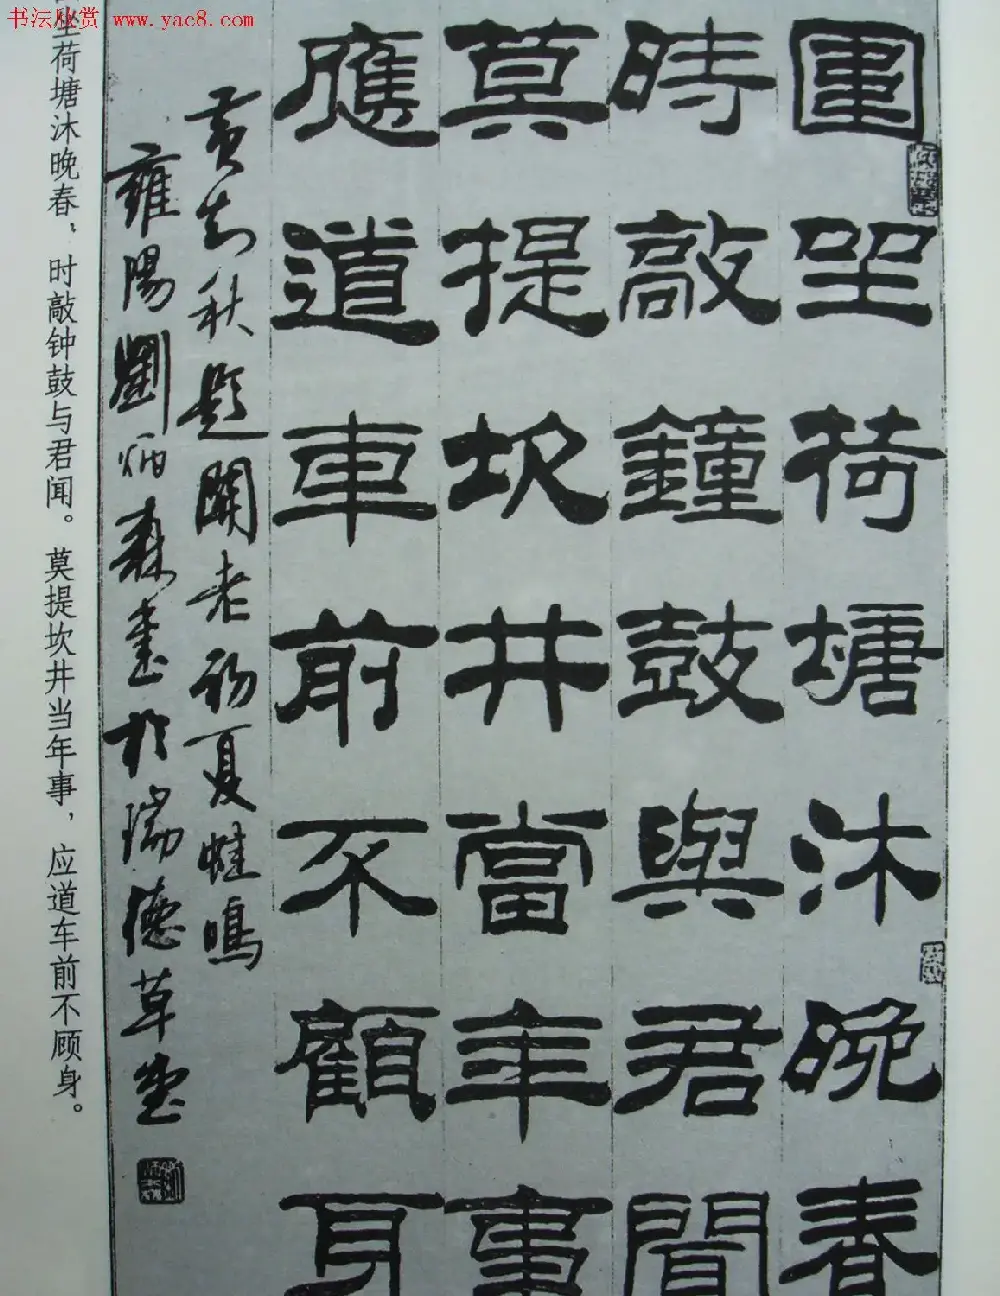 书坛欣赏 http://www.yac8.com
圍坐荷塘沐晚春
時敲鐘鼓與君聞
莫提坎井當年事
應道車前不顧身
黄知秋題老初夏蛙鳴
雍陽劉炳森書於瑞德草堂
坐荷塘沐晚春，时敲钟鼓与君闻。莫提坎井当年事，应道车前不顾身。